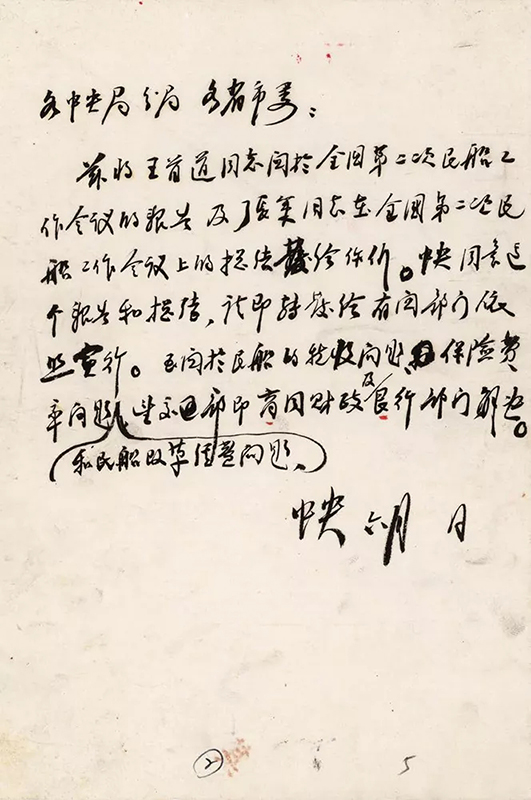 各中央局分局 各省市委：
兹将王首道同志关於全国第二次民船工
作会议的报告及张策同志在全国第二次民
船工作会议上的总结发给你们。中央同意这
个报告和总结，请即转发给有关部门依
照实行。至关於民船的税收问题和保险费
率问题，望交通部即商同财政及银行部门解决。
和民船改革经营问题，
中央 六月 日
② 5